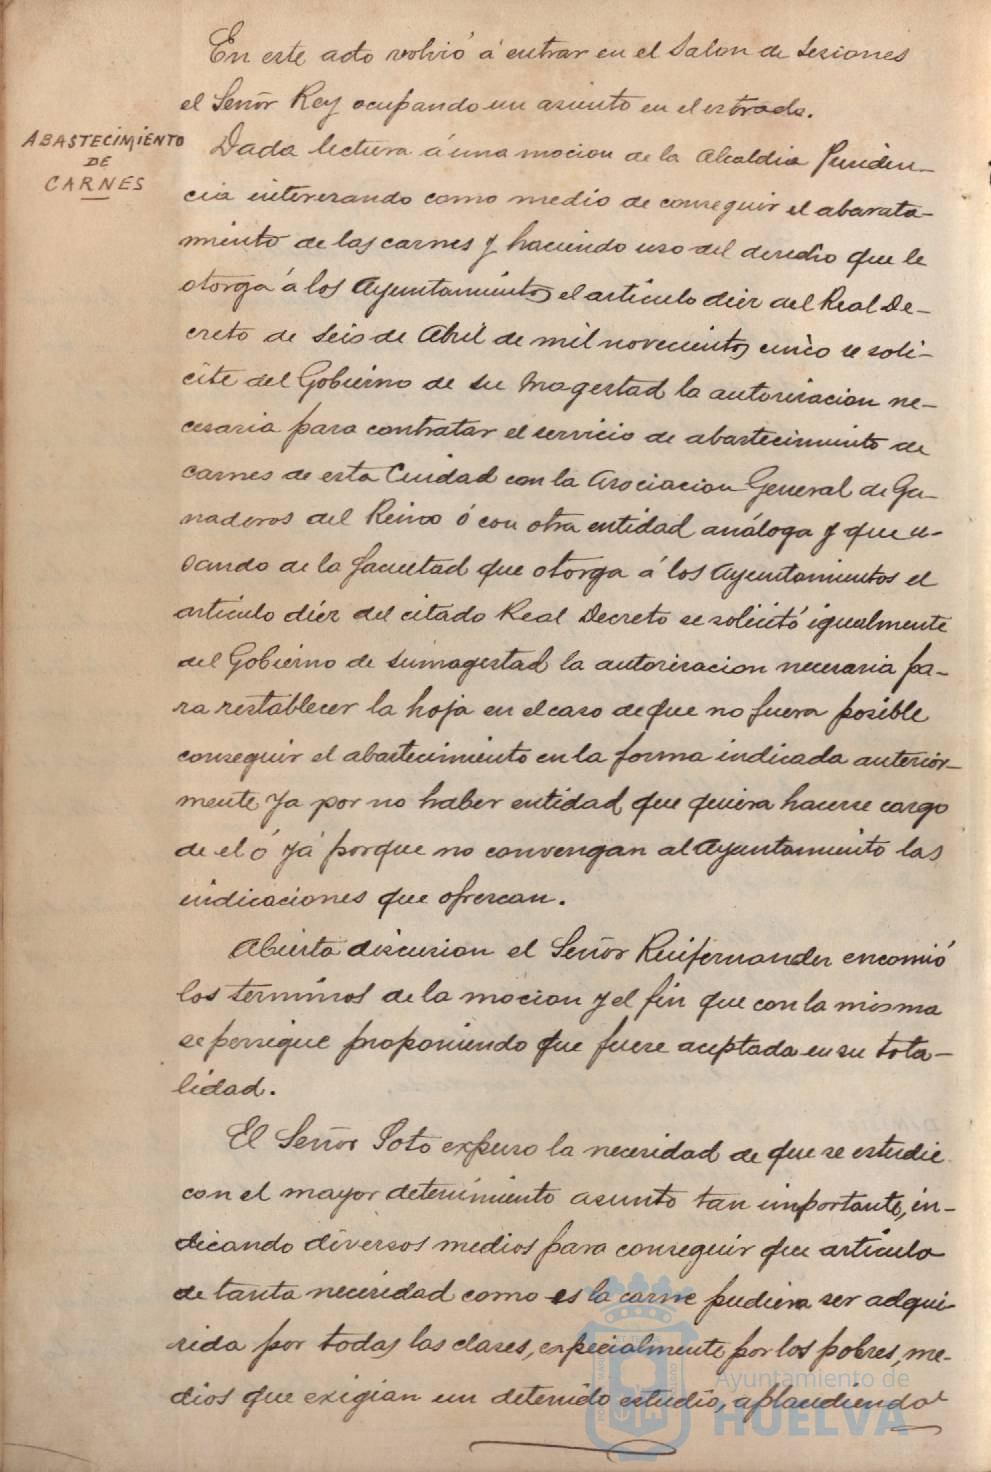 En este acto volvió á entrar en el Salon de Sesiones
el Señor Rey ocupando un asiento en el estrado.
ABASTECIMIENTO
DE
CARNES
Dada lectura á una mocion de la Alcaldia Presiden-
cia interesando como medio de conseguir el abarata-
miento de las carnes y haciendo uso del derecho que le
otorga á los Ayuntamientos el articulo diez del Real De-
creto de seis de Abril de mil novecientos cinco se soli-
cite del Gobierno de su Magestad la autorizacion ne-
cesaria para contratar el servicio de abastecimiento de
carnes de esta Ciudad con la Asociacion General de Ga-
naderos del Reino ó con otra entidad análoga y que u-
sando de la facultad que otorga á los Ayuntamientos el
articulo diez del citado Real Decreto se solicitó igualmente
del Gobierno de su magestad la autorizacion necesaria pa-
ra restablecer la hoja en el caso de que no fuera posible
conseguir el abastecimiento en la forma indicada anterior-
mente ya por no haber entidad que quiera hacerse cargo
de el ó yá porque no convengan al Ayuntamiento las
indicaciones que ofrezcan.
Abierta discusion el Señor Ruifernandez encomió
los terminos de la mocion y el fin que con la misma
se persigue proponiendo que fuese aceptada en su tota-
lidad.
El Señor Soto expuso la necesidad de que se estudie
con el mayor detenimiento asunto tan importante, in-
dicando diversos medios para conseguir que articulo
de tanta necesidad como es la carne pudiera ser adqui-
rida por todas las clases, especialmente por los pobres, me-
dios que exigian un detenido estudio, aplaudiendo
Ayuntamiento de
HUELVA